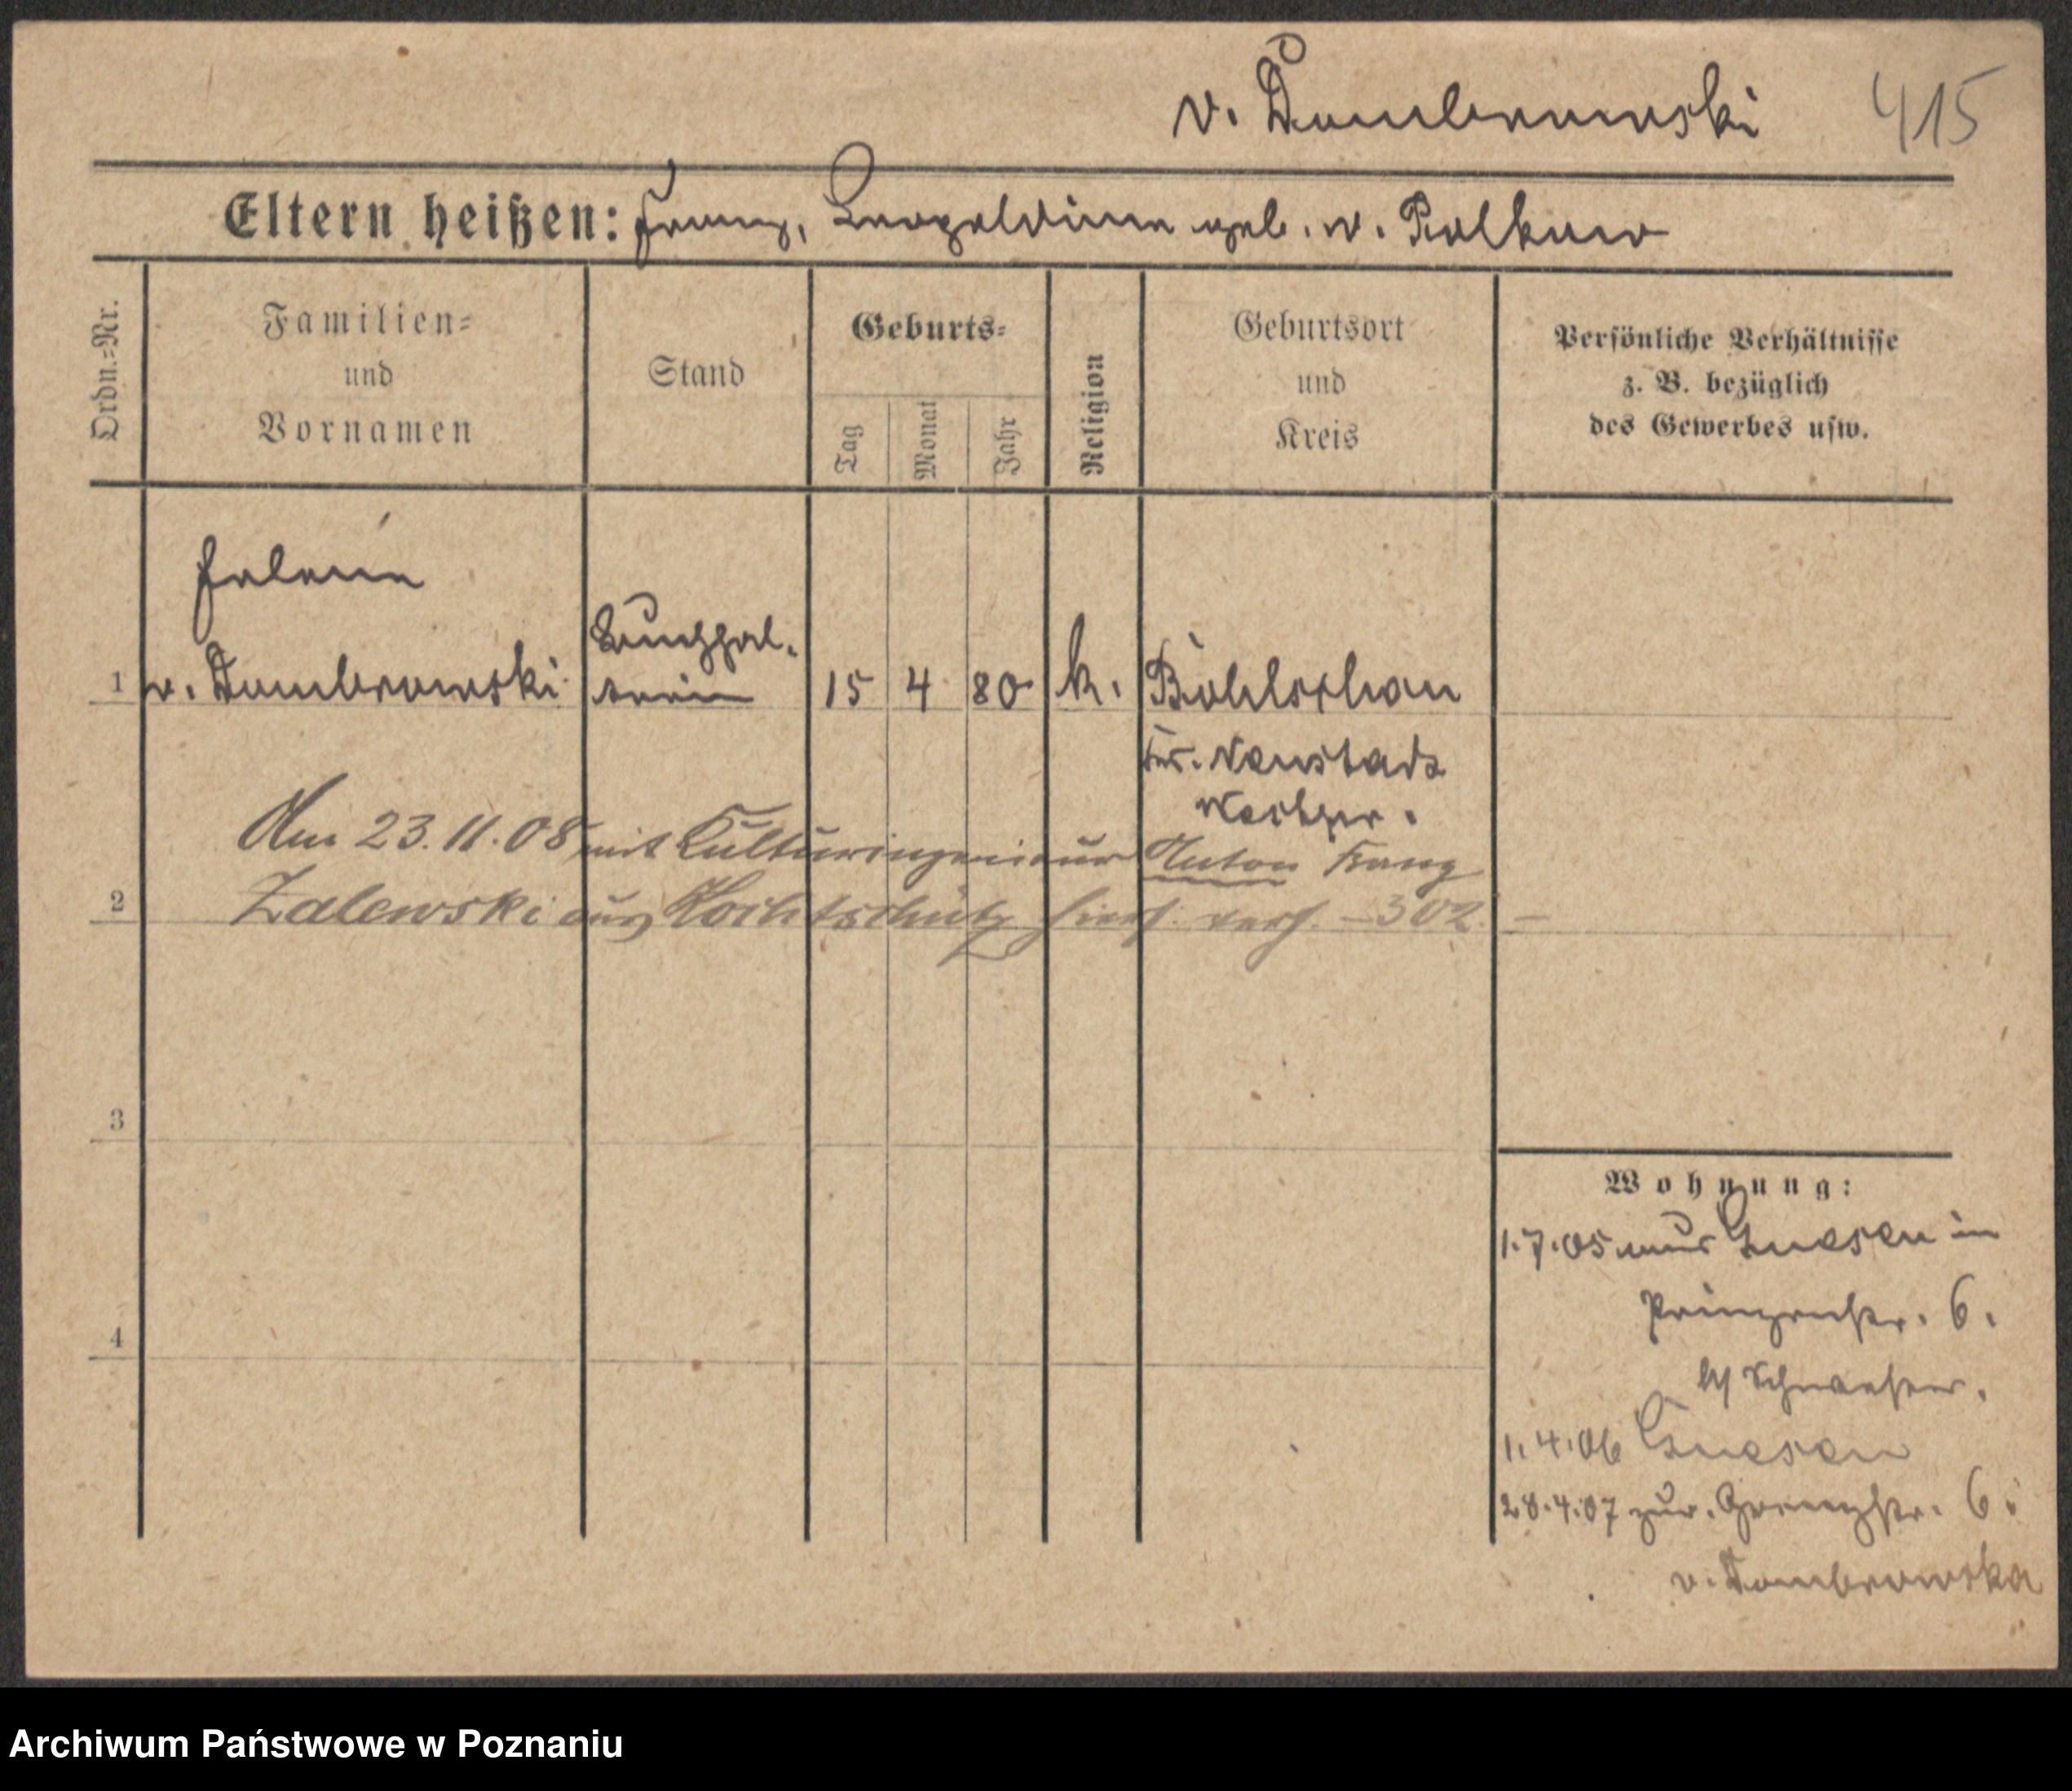 v. Dombrowski 415
Eltern heißen: Franz, Leopoldine geb. v.
Ordn.-Nr.
Familien-
und
Vornamen
Stand
Geburts-
Tag
Monat
Jahr
Religion
Geburtsort
und
Kreis
Persönliche Verhältnisse
z. B. bezüglich
des Gewerbes usw.
Helene
1 v. Dombrowski
Buchhal-
terin
15 4 80 k.
Bohlschau
Kr. Neustadt
Westpr.
Am 23.11.08 mit Kulturingenieur Anton Franz
2 Zalewski aus Kochtschütz hier verh. – 302 –
3
4
Wohnung:
1.7.05 aus Gnesen in
Prinzenstr. 6.
b/ Schwester.
1.4.06 Gnesen
28.4.07 zur. 6.
v. Dombrowska
Archiwum Państwowe w Poznaniu